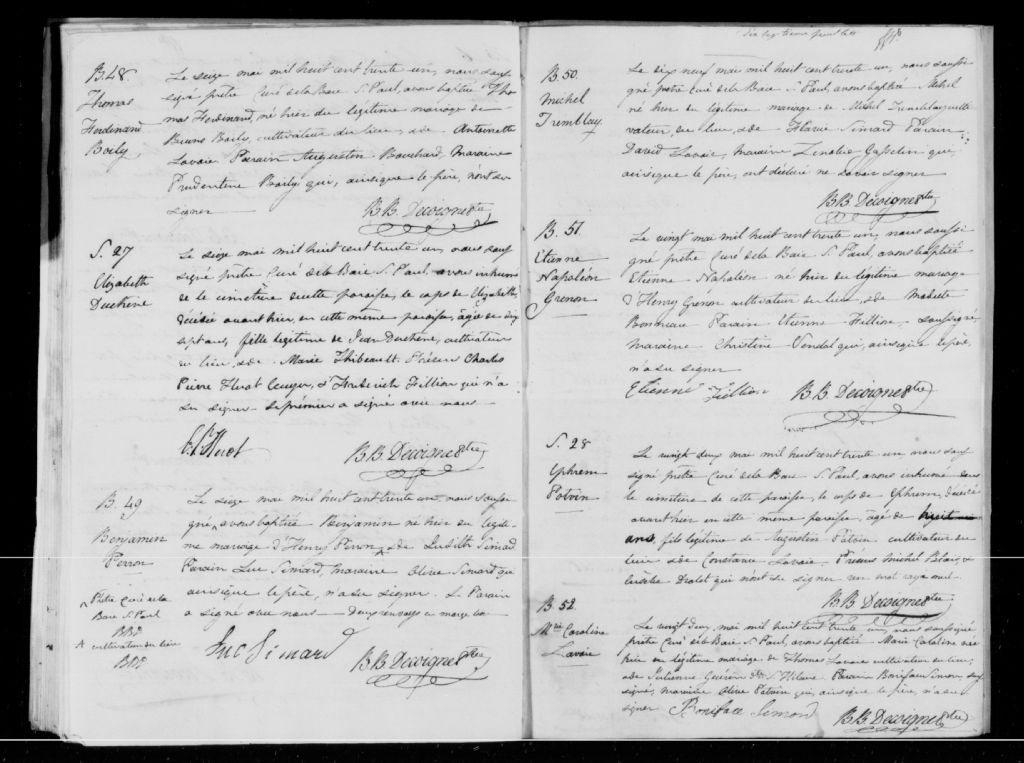 B. 48.
Thomas
Ferdinand
Boily
Le seize mai mil huit cent trente un, nous sous-
signé prêtre Curé de la Baie S. Paul, avons baptisé Tho
mas Ferdinand, né hier du légitime mariage de
Bruno Boily, cultivateur du lieu, & de Antoinette
Lavoie Parain Augustin Bouchard, Maraine
Prudentine Boily qui, ainsique le père, n'ont su
signer
B B Decoigne Ptre
S. 27
Elizabeth
Duchene
Le seize mai mil huit cent trente un, nous sous
signé prêtre Curé de la Baie S. Paul, avons inhumé
ds le cimetière de cette paroisse, le corps de Elizabeth,
décédée avant hier, en cette même paroisse, agée de dix
sept ans, fille légitime de Jean Duchene, cultivateur
du lieu, & de Marie Thibeault. Présens Charles
Pierre Huot Ecuyer, & Frederick Fillion qui n'a
su signer. Le prémier a signé avec nous
C. P. Huot
B B Decoigne Ptre
B. 49
Benjamin
Perron
^ Prêtre Curé de la
Baie S. Paul
BBD
A cultivateur du lieu
BBD
Le seize mai mil huit cent trente un, nous soussi
gné ^ avons baptisé Benjamin né hier du légiti-
me mariage d'Henry Perron & de Judith Simard
Parain Luc Simard, maraine Olive Simard qui
ainsique le père, n'a su signer. Le Parain
a signé avec nous Deux renvoys en marge bon
Luc Simard
B B Decoigne Ptre
B. 50.
Michel
Tremblay
Le dix neuf mai mil huit cent trente un, nous soussi
gné prêtre Curé de la Baie S. Paul, avons baptisé Michel
né hier du légitime mariage de Michel Tremblay culti
vateur du lieu, & de Flavie Simard Parain
David Lavoie, Maraine Zenobie Gosselin qui,
ainsique le père, ont déclaré ne savoir signer
B B Decoigne Ptre
B. 51.
Etienne
Napoléon
Grenon
Le vingt mai mil huit cent trente un, nous soussi
gné prêtre Curé de la Baie S. Paul, avons baptisé
Etienne Napoléon né hier du légitime mariage
d'Henry Grenon cultivateur du lieu, & de Modeste
Bonneau Parain Etienne Fillion soussigné,
Maraine Christine Vendal qui, ainsique le père,
n'a su signer
Etienne Fillion
B B Decoigne Ptre
S. 28
Ephrem
Potvin
Le vingt deux mai mil huit cent trente un nous sous
signé prêtre Curé de la Baie S. Paul, avons inhumé dans
le cimetière de cette paroisse, le corps de Ephrem, décédé
avant hier en cette même paroisse, agé de huit
ans, fils légitime de Augustin Potvin cultivateur du
lieu & de Constance Lavoie. Présens Michel Blais, &
Eusèbe Drolet qui n'ont su signer un mot rayé nul
B B Decoigne Ptre
B. 52.
Mrie Caroline
Lavoie
Le vingt deux, mai mil huit cent trente un, nous soussigné
prêtre Curé de la Baie S. Paul, avons baptisé Marie Caroline née
hier du légitime mariage de Thomas Lavoie cultivateur du lieu,
& de Julienne Guérin dite S. Hilaire Parain Boniface Simard, sous
signé, Maraine Olive Potvin qui, ainsique le père, n'a su
signer Boniface Simard
B B Decoigne Ptre